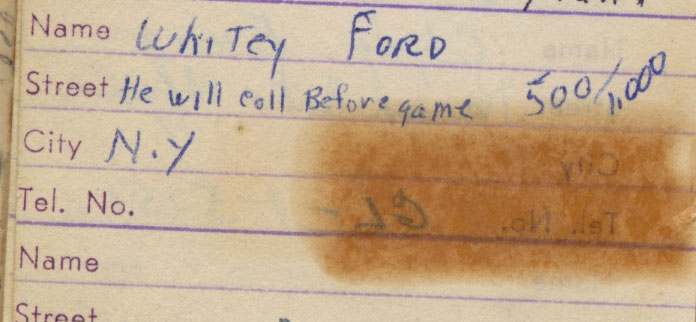 Name Whitey Ford
Street He will call Before game 500/1,000
City N.Y
Tel. No.
Name
Street